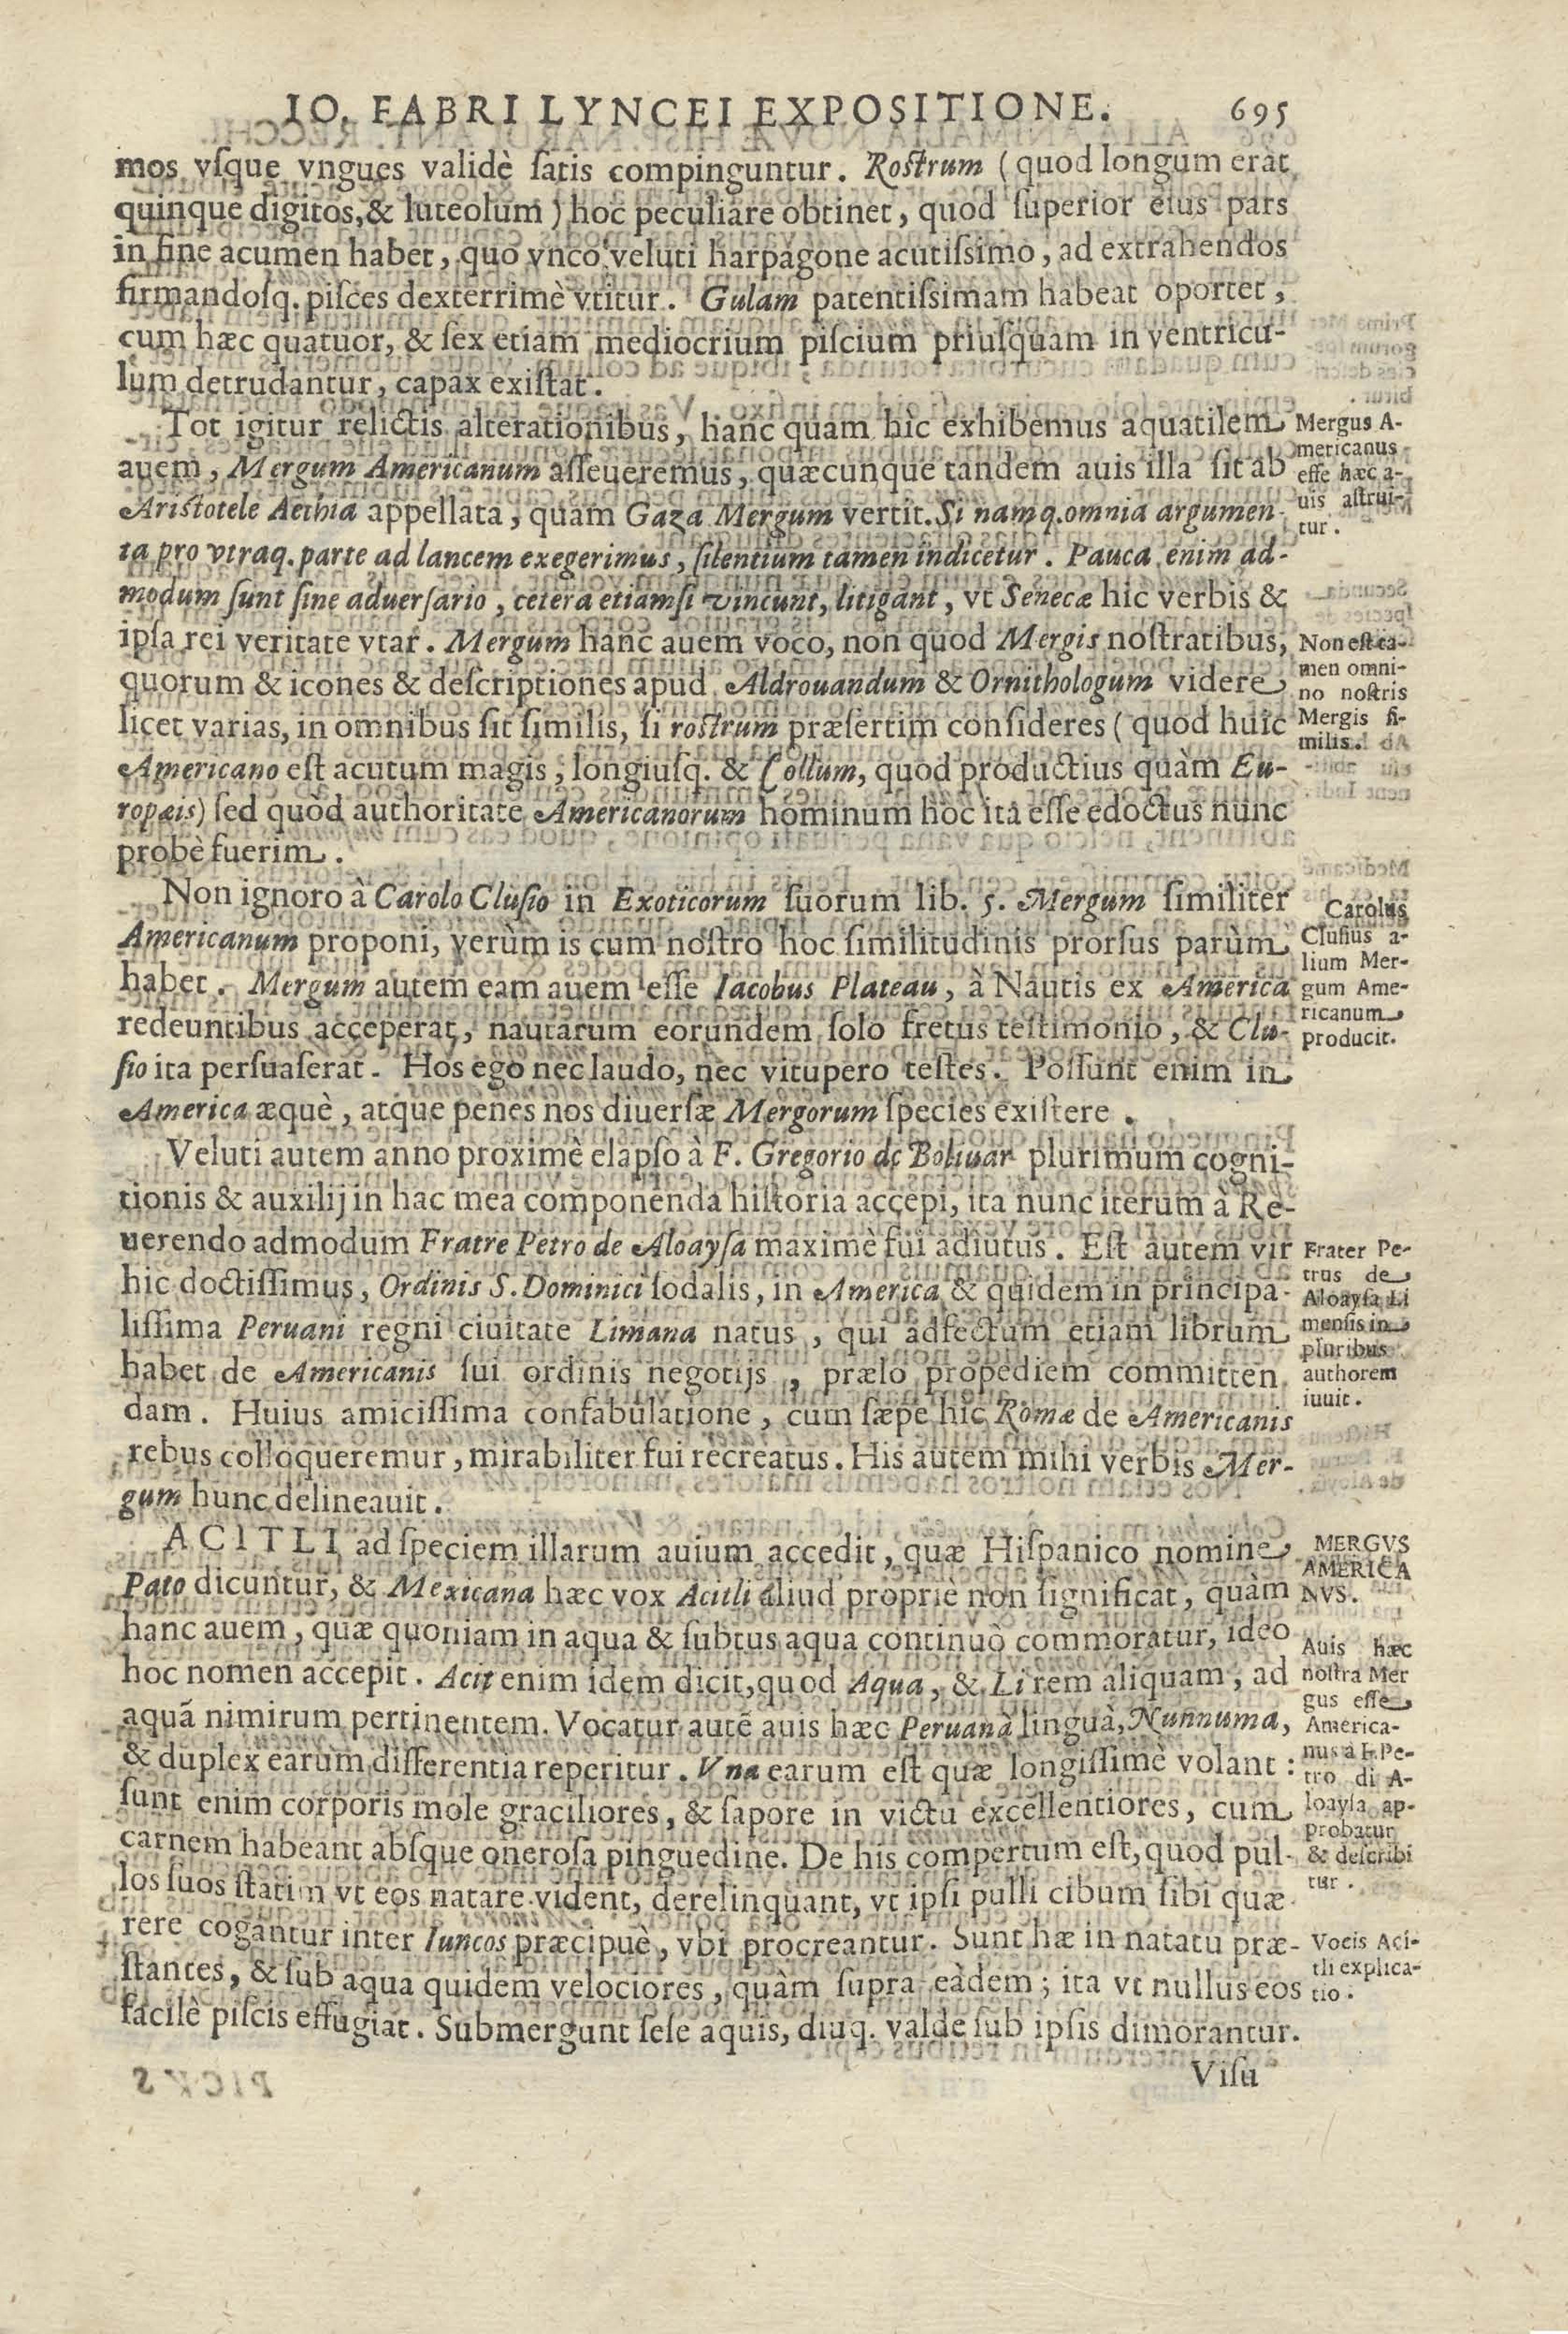 IO. FABRI LYNCEI EXPOSITIONE. 695
mos vſque vngues validè ſatis compinguntur. Roſtrum (quod longum erat
quinque digitos, & luteolum) hoc peculiare obtinet, quod ſuperior eius pars
in fine acumen habet, quo vnco veluti harpagone acutiſsimo, ad extrahendos
firmandoſq. piſces dexterrimè vtitur. Gulam patentiſsimam habeat oportet,
cum hæc quatuor, & ſex etiam mediocrium piſcium priuſquam in ventricu-
lum detrudantur, capax exiſtat.
Tot igitur relictis alterationibus, hanc quam hìc exhibemus aquatilem
auem, Mergum Americanum aſſeueremus, quæcunque tandem auis illa ſit ab
Ariſtotele Aethia appellata, quam Gaza Mergum vertit. Si namq. omnia argumen-
ta pro vtraq. parte ad lancem exegerimus, ſilentium tamen indicetur. Pauca enim ad-
modum ſunt ſine aduerſario, cetera etiamſi vincunt, litigant, vt Senecæ hic verbis &
ipſa rei veritate vtar. Mergum hanc auem voco, non quod Mergis noſtratibus,
quorum & icones & deſcriptiones apud Aldrouandum & Ornithologum videre
licet varias, in omnibus ſit ſimilis, ſi roſtrum præſertim conſideres (quod huic
Americano eſt acutum magis, longiuſq. & Collum, quod productius quàm Eu-
ropæis) ſed quòd authoritate Americanorum hominum hoc ita eſſe edoctus nunc
probè fuerim.
Non ignoro à Carolo Cluſio in Exoticorum ſuorum lib. 5. Mergum ſimiliter
Americanum proponi, verùm is cum noſtro hoc ſimilitudinis prorſus parùm
habet. Mergum autem eam auem eſſe Iacobus Plateau, à Nautis ex America
redeuntibus acceperat, nautarum eorundem ſolo fretus teſtimonio, & Clu-
ſio ita perſuaſerat. Hos ego nec laudo, nec vitupero teſtes. Poſſunt enim in
America æquè, atque penes nos diuerſæ Mergorum ſpecies exiſtere.
Veluti autem anno proximè elapſo à F. Gregorio de Boliuar plurimum cogni-
tionis & auxilij in hac mea componenda hiſtoria accepi, ita nunc iterum à Re-
uerendo admodum Fratre Petro de Aloayſa maximè fui adiutus. Eſt autem vir
hic doctiſſimus, Ordinis S. Dominici ſodalis, in America & quidem in principa-
liſſima Peruani regni ciuitate Limana natus, qui adfectum etiam librum
habet de Americanis ſui ordinis negotijs, prælo propediem committen
dam. Huius amiciſſima confabulatione, cum ſæpe hìc Romæ de Americanis
rebus colloqueremur, mirabiliter fui recreatus. His autem mihi verbis Mer-
gum hunc delineauit.
ACITLI ad ſpeciem illarum auium accedit, quæ Hiſpanico nomine
Pato dicuntur, & Mexicana hæc vox Acitli aliud propriè non ſignificat, quàm
hanc auem, quæ quoniam in aqua & ſubtus aqua continuò commoratur, ideo
hoc nomen accepit. Acit enim idem dicit, quod Aqua, & Li rem aliquam, ad
aquã nimirum pertinentem. Vocatur autẽ auis hæc Peruanà linguà, Nunnuma,
& duplex earum differentia reperitur. Vna earum eſt quæ longiſſimè volant:
ſunt enim corporis mole graciliores, & ſapore in victu excellentiores, cum
carnem habeant abſque oneroſa pinguedine. De his compertum eſt, quod pul-
los ſuos ſtatim vt eos natare vident, derelinquant, vt ipſi pulli cibum ſibi quæ
rere cogantur inter Iuncos præcipuè, vbi procreantur. Sunt hæ in natatu præ-
ſtantes, & ſub aqua quidem velociores, quàm ſupra eàdem; ita vt nullus eos
facilè piſcis effugiat. Submergunt ſeſe aquis, diuq. valde ſub ipſis dimorantur.
Viſu
Mergus A-
mericanus
eſſe hæc a-
uis aſtrui-
tur.
Non eſt ta-
men omni-
no noſtris
Mergis ſi-
milis.
Carolus
Cluſius a-
lium Mer-
gum Ame-
ricanum
producit.
Frater Pe-
trus de
Aloayſa Li
menſis in
pluribus
authorem
iuuit.
MERGVS
AMERICA
NVS.
Auis hæc
noſtra Mer
gus eſſe
America-
nus à F. Pe-
tro di A-
loayſa ap-
probatur
& deſcribi
tur.
Vocis Aci-
tli explica-
tio.